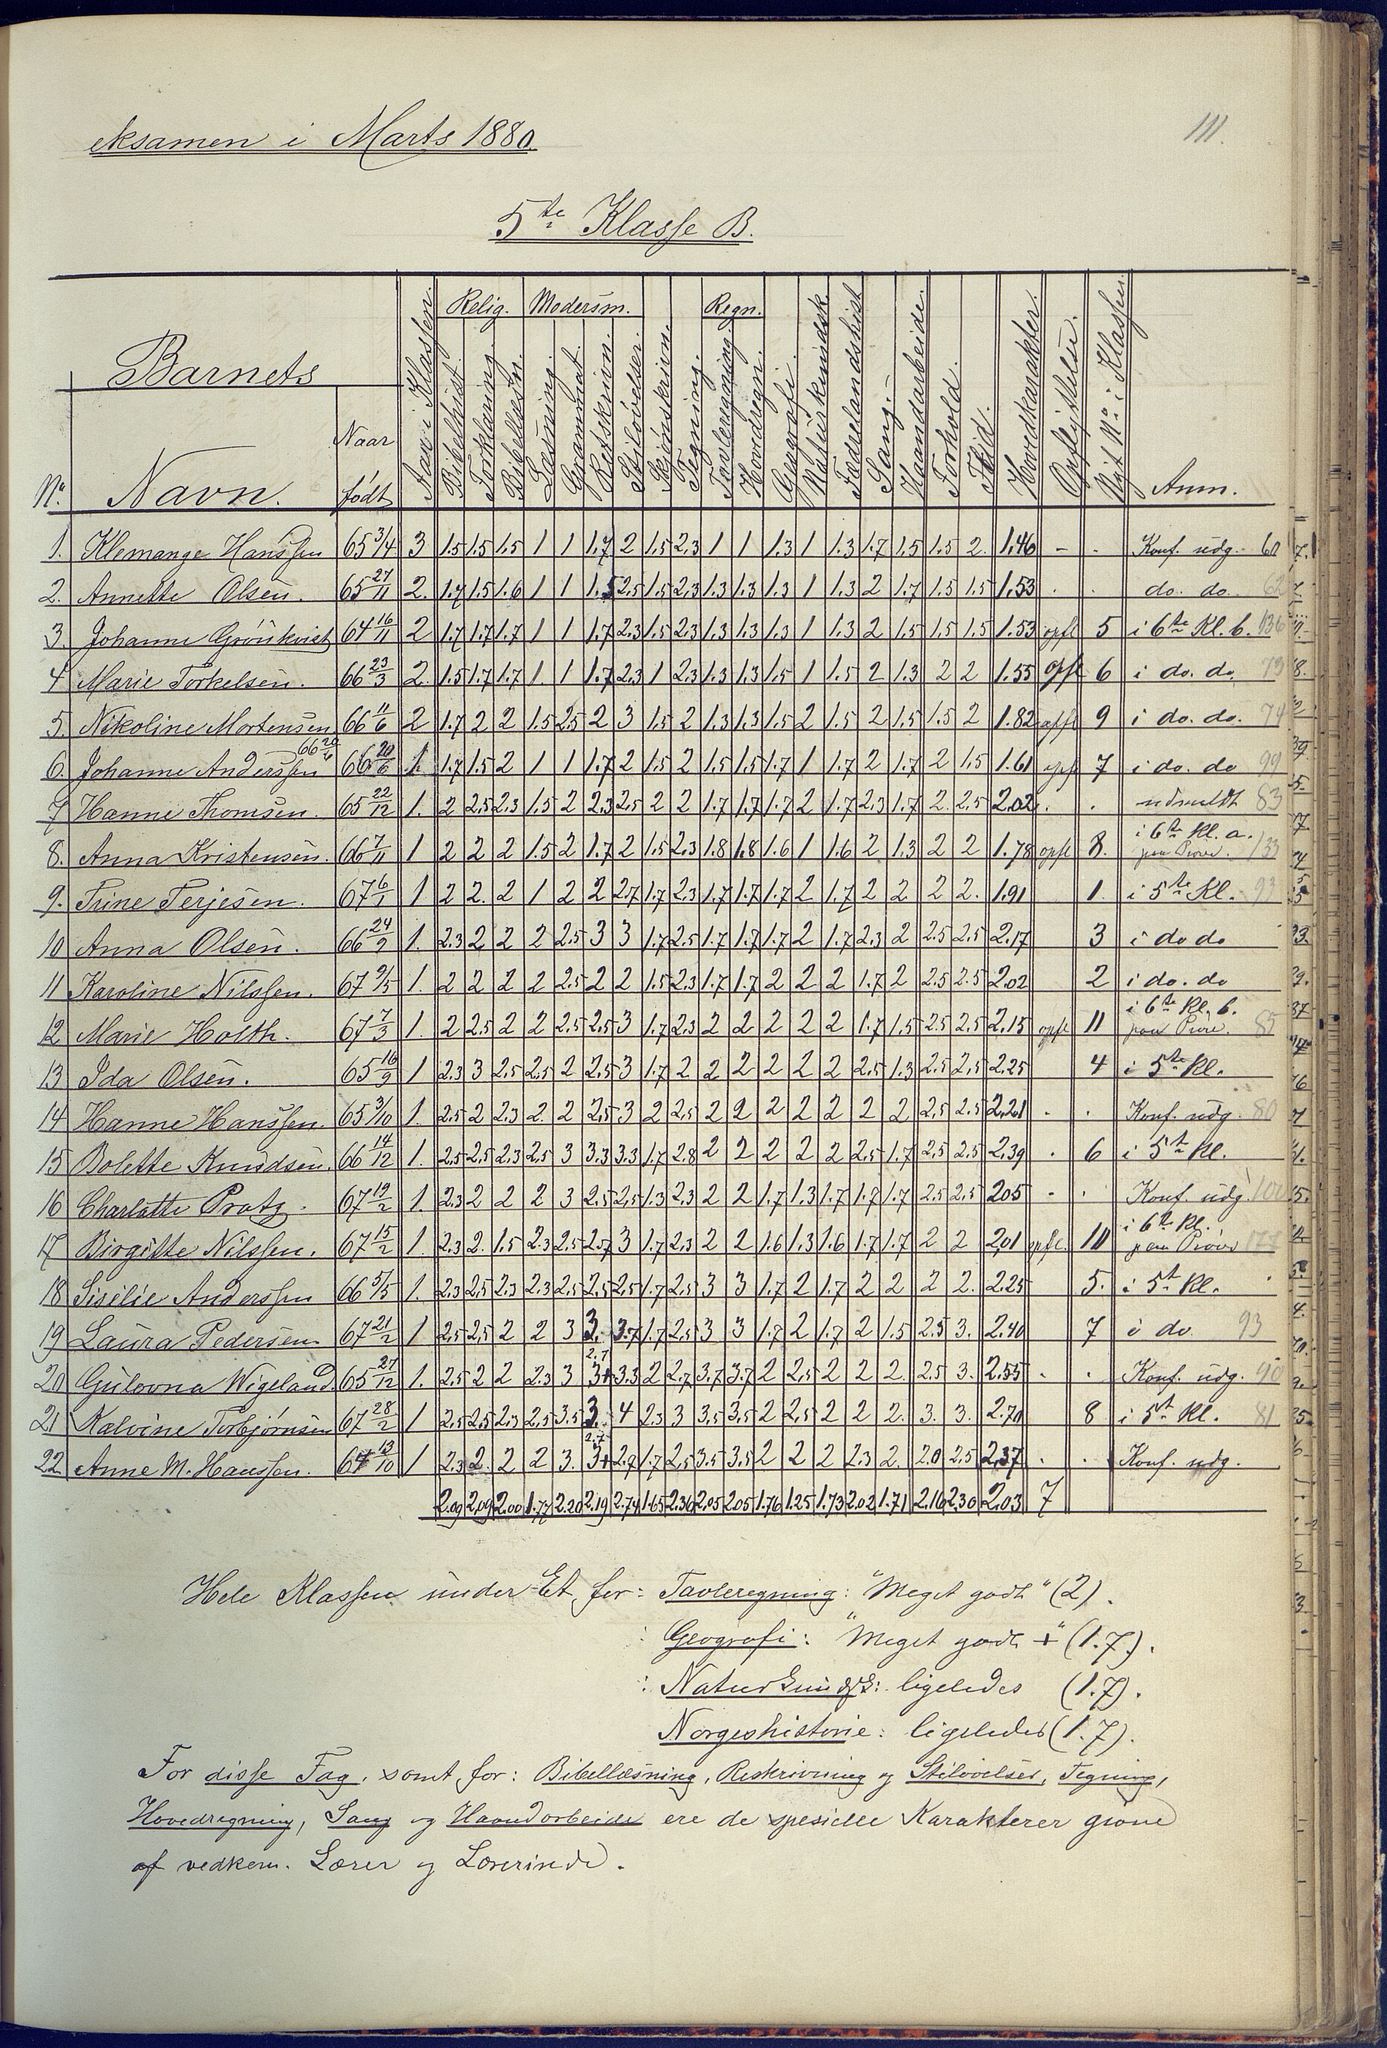 111.
eksamen i Marts 1880.
5te Klasse B.
Barnets
No. Navn. Naar født Aar i Klassen. Relig. Bibelhist. Forklaring. Bibellæsn. Modersm. Læsning. Grammat. Retskrivn. Stiløvelser. Skjönskrivn. Tegning. Regn. Tavleregning. Hovedregn. Geografi. Naturkundsk. Fædrelandshist. Sang. Haandarbeide. Forhold. Flid. Hovedkarakter. Opflyttelse. Nyt No. i Klassen. Anm.
1. Klemange Hanssen 65 3/4 3 1.5 1.5 1.5 1 1 1.7 2 1.5 2.3 1 1 1.3 1 1.3 1.7 1.5 1.5 2. 1.46 - . Konf. udg.
2. Annette Olsen. 65 27/11 2. 1.7 1.5 1.6 1 1 1.5 2.5 1.5 2.3 1.3 1.3 1.3 1 1.3 2 1.7 1.5 1.5 1.53 . . do. do. 62
3. Johanne Grönkvist 64 16/11 2 1.7 1.7 1.7 1 1 1.7 2.3 1.5 2.3 1.3 1.3 1.3 1 1.3 2 1.5 1.5 1.5 1.53 opfl 5 i 6te Kl. b. 136
4 Marie Torkelsen. 66 23/3 2. 1.5 1.7 1.7 1 1 1.7 2.3 1 2.3 1.3 1.3 1.5 1 1.5 2 1.3 2 2 1.55 opfl 6 i do. do. 73
5. Nikoline Mortensen 66 11/6 2 1.7 2 2 1.5 2.5 2 3 1.5 2 1.3 1.3 1.5 2 1.5 2 1.5 1.5 2 1.82 opfl 9 i do. do. 74
6. Johanne Anderssen 66 20/6 1. 1.7 1.5 2 1 1 1.7 2 1.5 2 1.5 1.5 1.7 1 1.7 2 1.7 2 1.5 1.61 opfl 7 i do. do 99
7 Hanne Thomsen. 65 22/12 1. 2 2.5 2.3 1.5 2 2.3 2.5 2 2 1.7 1.7 1.7 2 1.7 2.3 1.7 2. 2.5 2.02 . . udmeldt 83
8. Anna Kristensen. 66 7/11 1 2 2 2 1.5 2 1.7 2 1.5 2.3 1.8 1.8 1.6 1 1.6 2 1.3 2 2 1.78 opfl 8. i 6te Kl. a. paa Prøve. 133
9. Trine Terjesen. 67 6/1 1 2 2. 2 1 2 2 2.7 1.7 2.3 1.7 1.7 1.7 2 1.7 2 2 2 2. 1.91 1. i 5te Kl. 93
10 Anna Olsen. 66 24/9 1. 2.3 2 2 2 2.5 3 3 1.7 2.5 1.7 1.7 1.7 2 1.7 2.3 2 2.5 2.5 2.17 3 i do do
11 Karoline Nilssen. 67 2/5 1. 2 2 2 2 2.5 2 2 1.5 2.3 1.7 1.7 2 2 2 1.7 2 2.5 2.5 2.02 2 i do. do
12 Marie Holth. 67 7/3 1. 2 2.5 2 2 2.5 2.5 3 1.7 2.3 2 2 2 2 2 1.7 1.5 2.5 2.5 2.15 opfl 11 i 6te Kl. b. paa Prøve. 85
13 Ida Olsen. 65 16/9 1 2.3 3 2.5 2.5 2 2.5 3 1.7 2 2 2 2 2 2 2.5 1.3 2.5 2.5 2.25 4 i 5te Kl.
14 Hanne Hanssen. 65 3/10 1. 2.5 2 2.3 2. 2 2.5 3 2 2.5 2 2 2 2 2 2 2 2.5 2.5 2.21 . . Konf. udg. 80
15 Bolette Knudsen. 66 14/12 1. 2.5 2.5 2.3 2.5 3 3.3 3.3 1.7 2.8 2 2 2 2 2 2.5 1.7 2.5 2.5 2.39 . 6 i 5te Kl.
16 Charlotte Pratz. 67 19/2 1. 2.3 2 2 2 3 2.5 2.5 1.3 2.3 2 2 1.7 1.3 1.7 1.7 1.7 2.5 2.5 2.05 . . Konf. udg.
17 Birgitte Nilssen. 67 15/2 1. 2.3 2. 1.5 2.3 2.5 2.7 3 1.7 2.3 2 2 1.6 1.3 1.6 1.7 1.7 2 2 2.01 opfl. 10 i 6te Kl. paa Prøve
18 Siselie Anderssen 66 5/5 1. 2.3 2.5 2.3 2.3 2.5 2.5 2.5 1.7 2.5 3 3 1.7 2 1.7 2 2 2 2. 2.25 5. i 5te Kl.
19 Laura Pedersen 67 21/2 1 2.5 2.5 2 2 3 3. 3.7 1.7 2.5 3 3 1.7 2 1.7 2 1.5 2.5 3. 2.40 7 i do. 93
20 Gulovna Wigeland. 65 27/12 1. 2.5 2 2 2.3 3 2.7 3+ 3.3 2 2.7 3.7 3.7 2 2.5 2 2 2. 2.5 3. 2.55 . . Konf. udg. 90
21 Kalvine Torbjørnsen 67 28/2 1 2.5 2.5 2.3 2.5 3.5 3. 4 2.3 3 3.5 3.5 2 2.5 2 2 2. 3. 3. 2.70 8 i 5te Kl. 81
22 Anne M. Hanssen. 64 13/10 1 2.3 2. 2 2 3. 2.7 3+ 2.7 1.7 2.5 3.5 3.5 2 2 2 2.3 2. 2.0 2.5 2.37 . . Konf. udg.
2.09 2.09 2.00 1.77 2.20 2.19 2.74 1.65 2.36 2.05 2.05 1.76 1.25 1.73 2.02 1.71 2.16 2.30 2.03 7
Hele Klassen under Et for: Tavleregning: "Meget godt" (2).
: Geografi: "Meget godt +" (1.7).
: Naturkundsk: ligeledes (1.7).
Norgeshistorie: ligeledes (1.7).
For disse Fag, samt for: Bibellæsning, Reskrivning og Stiløvelser, Tegning,
Hovedregning, Sang og Haandarbeide ere de spesielle Karakterer givne
af vedkom. Lærer og Lærerinde.